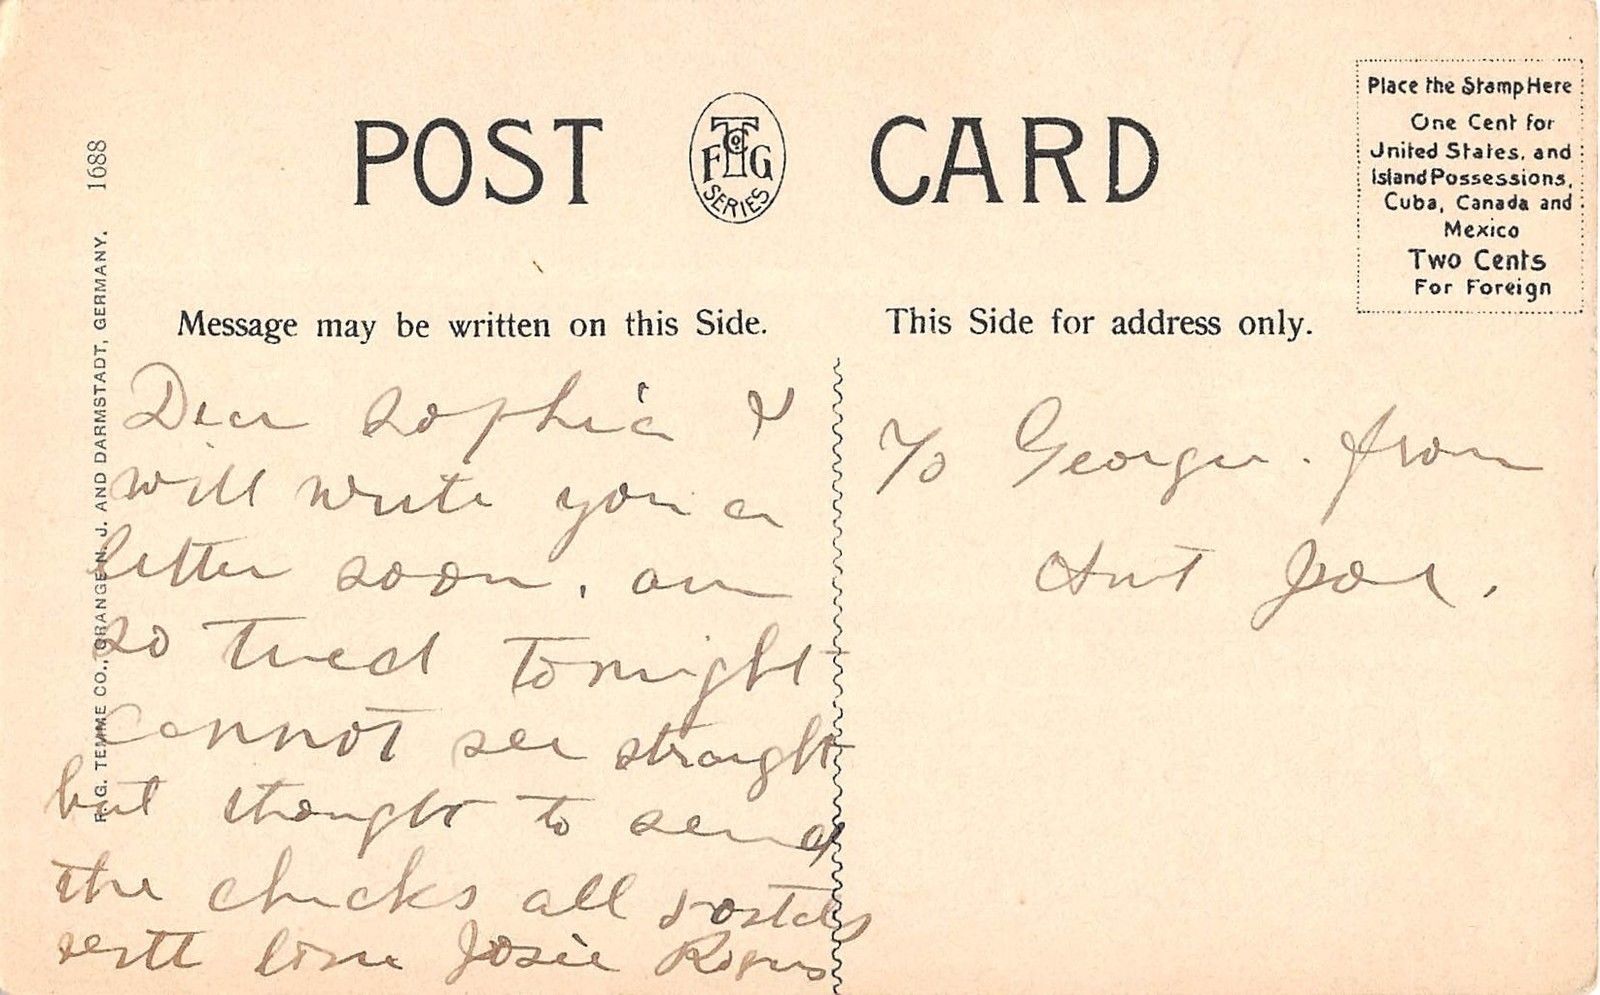 POST CARD
F T Co G
SERIES
Place the Stamp Here
One Cent for
United States, and
Island Possessions,
Cuba, Canada and
Mexico
Two Cents
For Foreign
1688
F. G. TEMME CO., ORANGE N. J. AND DARMSTADT, GERMANY.
Message may be written on this Side.
This Side for address only.
Dear Sophia I
will write you a
letter soon, am
so tired tonight
cannot see straight
but thought to send
the chicks all postals
with love Josie
To George. from
Aunt Joe.